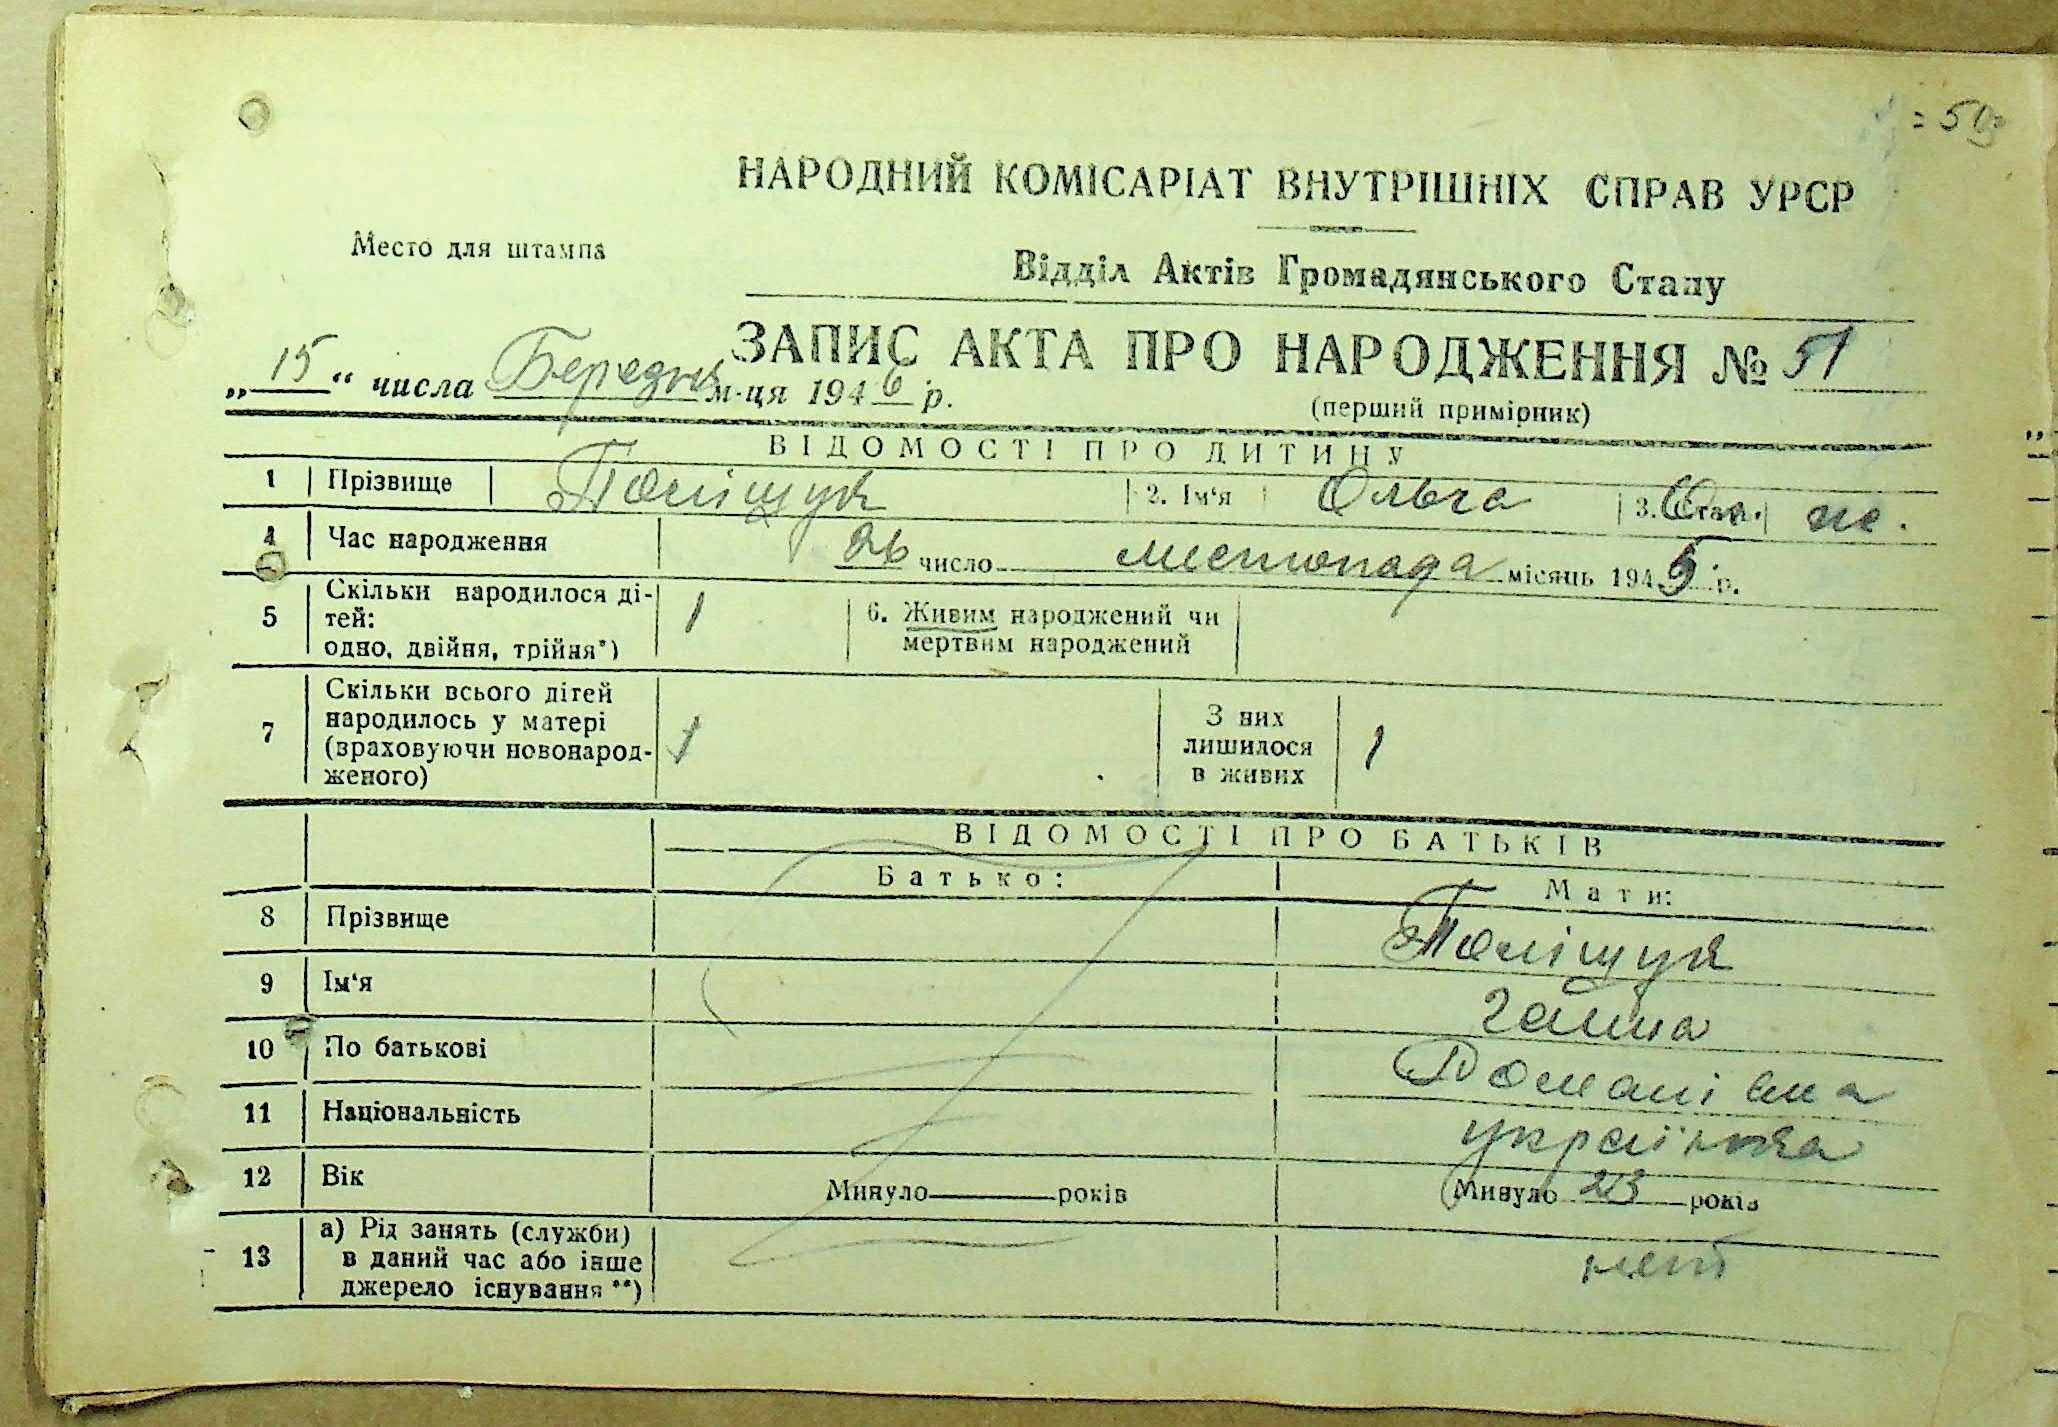 50
НАРОДНИЙ КОМІСАРІАТ ВНУТРІШНІХ СПРАВ УРСР
Место для штампа
Відділ Актів Громадянського Стану
ЗАПИС АКТА ПРО НАРОДЖЕННЯ № 51
„15“ числа Березня м-ця 1946 р.
(перший примірник)
ВІДОМОСТІ ПРО ДИТИНУ
1 Прізвище Поліщук 2. Ім‘я Ольга 3. Стать ж.
4 Час народження 26 число листопада місяць 1945 р.
5 Скільки народилося ді-
тей:
одно, двійня, трійня*)
1
6. Живим народжений чи
мертвим народжений
7 Скільки всього дітей
народилось у матері
(враховуючи новонарод-
женого)
1
З них
лишилося
в живих
1
ВІДОМОСТІ ПРО БАТЬКІВ
Батько: Мати:
8 Прізвище Поліщук
9 Ім‘я Ганна
10 По батькові Романівна
11 Національність українка
12 Вік Минуло років Минуло 23 років
13 а) Рід занять (служби)
в даний час або інше
джерело існування **)
нет